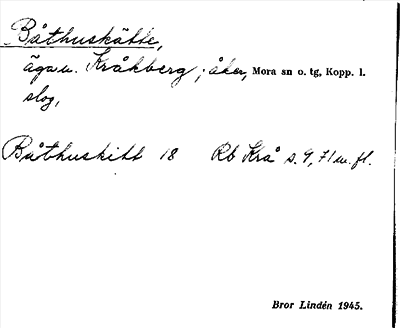 Båthuskätte,
äga u. Kråkberg; åker, Mora sn o. tg, Kopp. l.
slog,
Båthuskitt 18 Rb Krå s. 9, 71 m. fl.
Bror Lindén 1945.